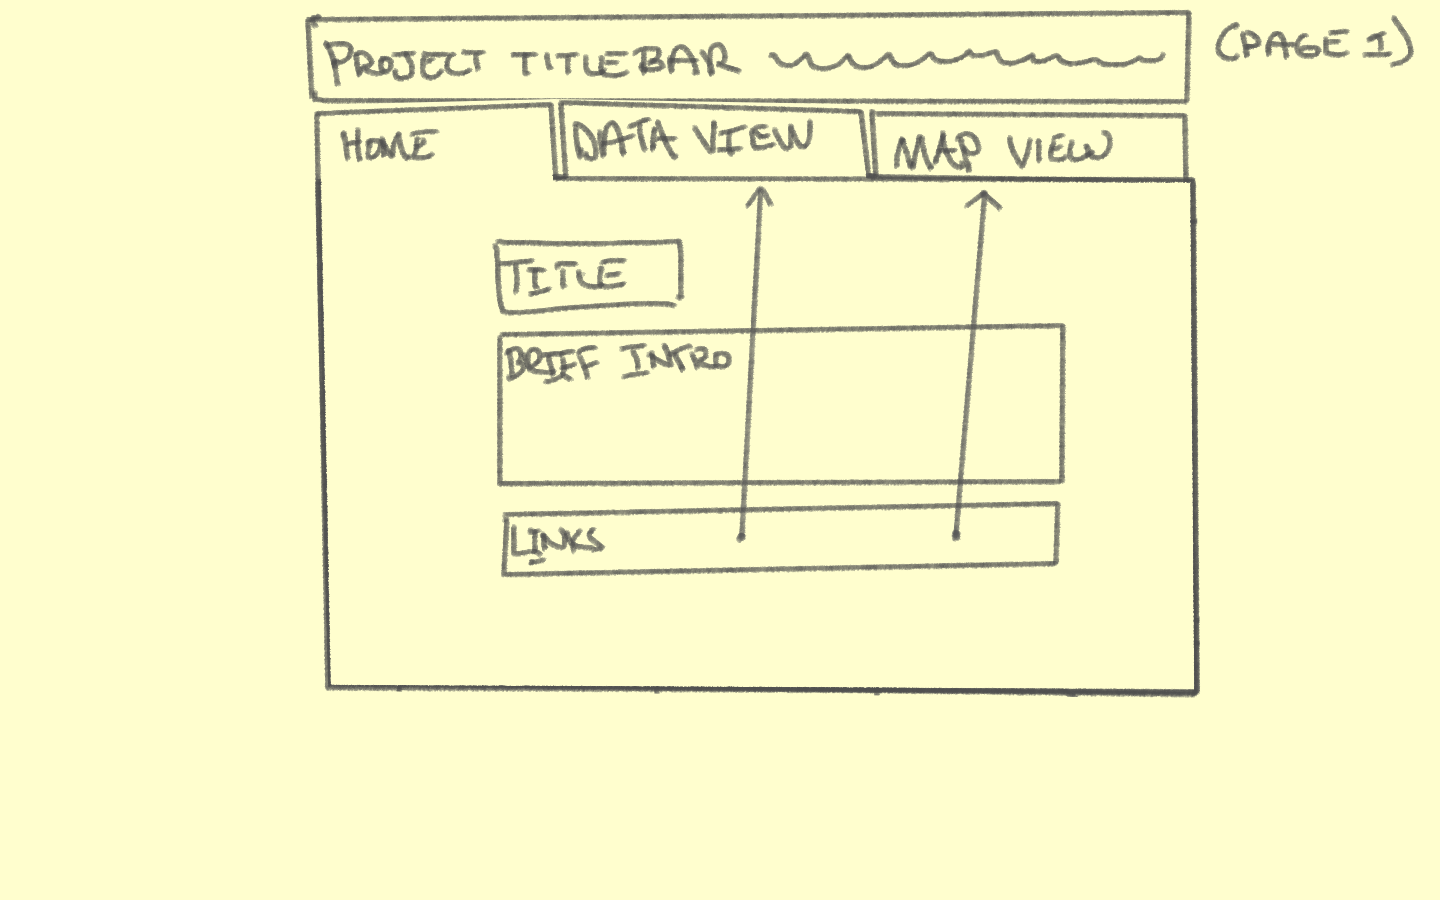 PROJECT TITLEBAR
(PAGE 1)
HOME
DATA VIEW
MAP VIEW
TITLE
BRIEF INTRO
LINKS